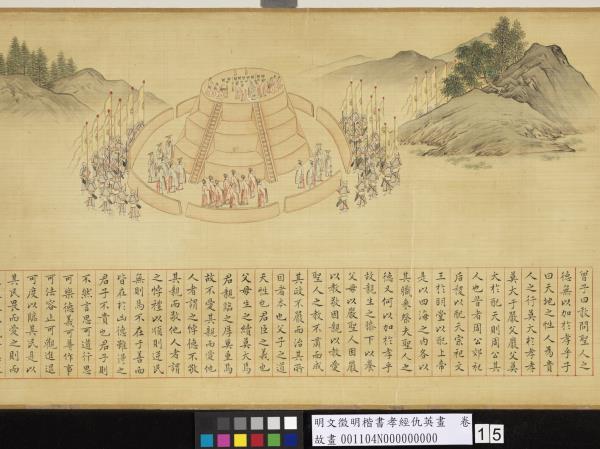 曾子曰敢問聖人之
德無以加於孝乎子
曰天地之性人為貴
人之行莫大於孝孝
莫大于嚴父嚴父莫
大於配天則周公其
人也昔者周公郊祀
后稷以配天宗祀文
王於明堂以配上帝
是以四海之內各以
其職來祭夫聖人之
德又何以加於孝乎
故親生之膝下以養
父母日嚴聖人因嚴
以教敬因親以教愛
聖人之教不肅而成
其政不嚴而治其所
因者本也父子之道
天性也君臣之義也
父母生之續莫大焉
君親臨之厚莫重焉
故不愛其親而愛他
人者謂之悖德不敬
其親而敬他人者謂
之悖禮以順則逆民
無則焉不在于善而
皆在於凶德雖得之
君子不貴也君子則
不然言思可道行思
可樂德義可尊作事
可法容止可觀進退
可度以臨其民是以
其民畏而愛之則而
明文徵明楷書孝經仇英畫 卷
故畫 001104N000000000
15